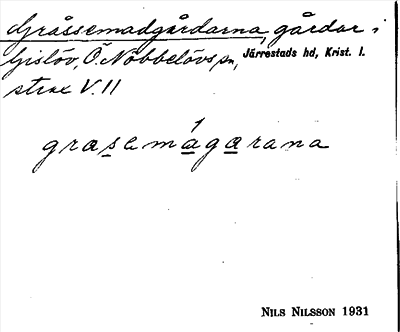 Gråssemadgårdarna, gårdar i
Gislöv, Ö. Nöbbelövs sn, Järrestads hd, Krist. l.
strax V. 11
1
grasemágarana
NILS NILSSON 1931